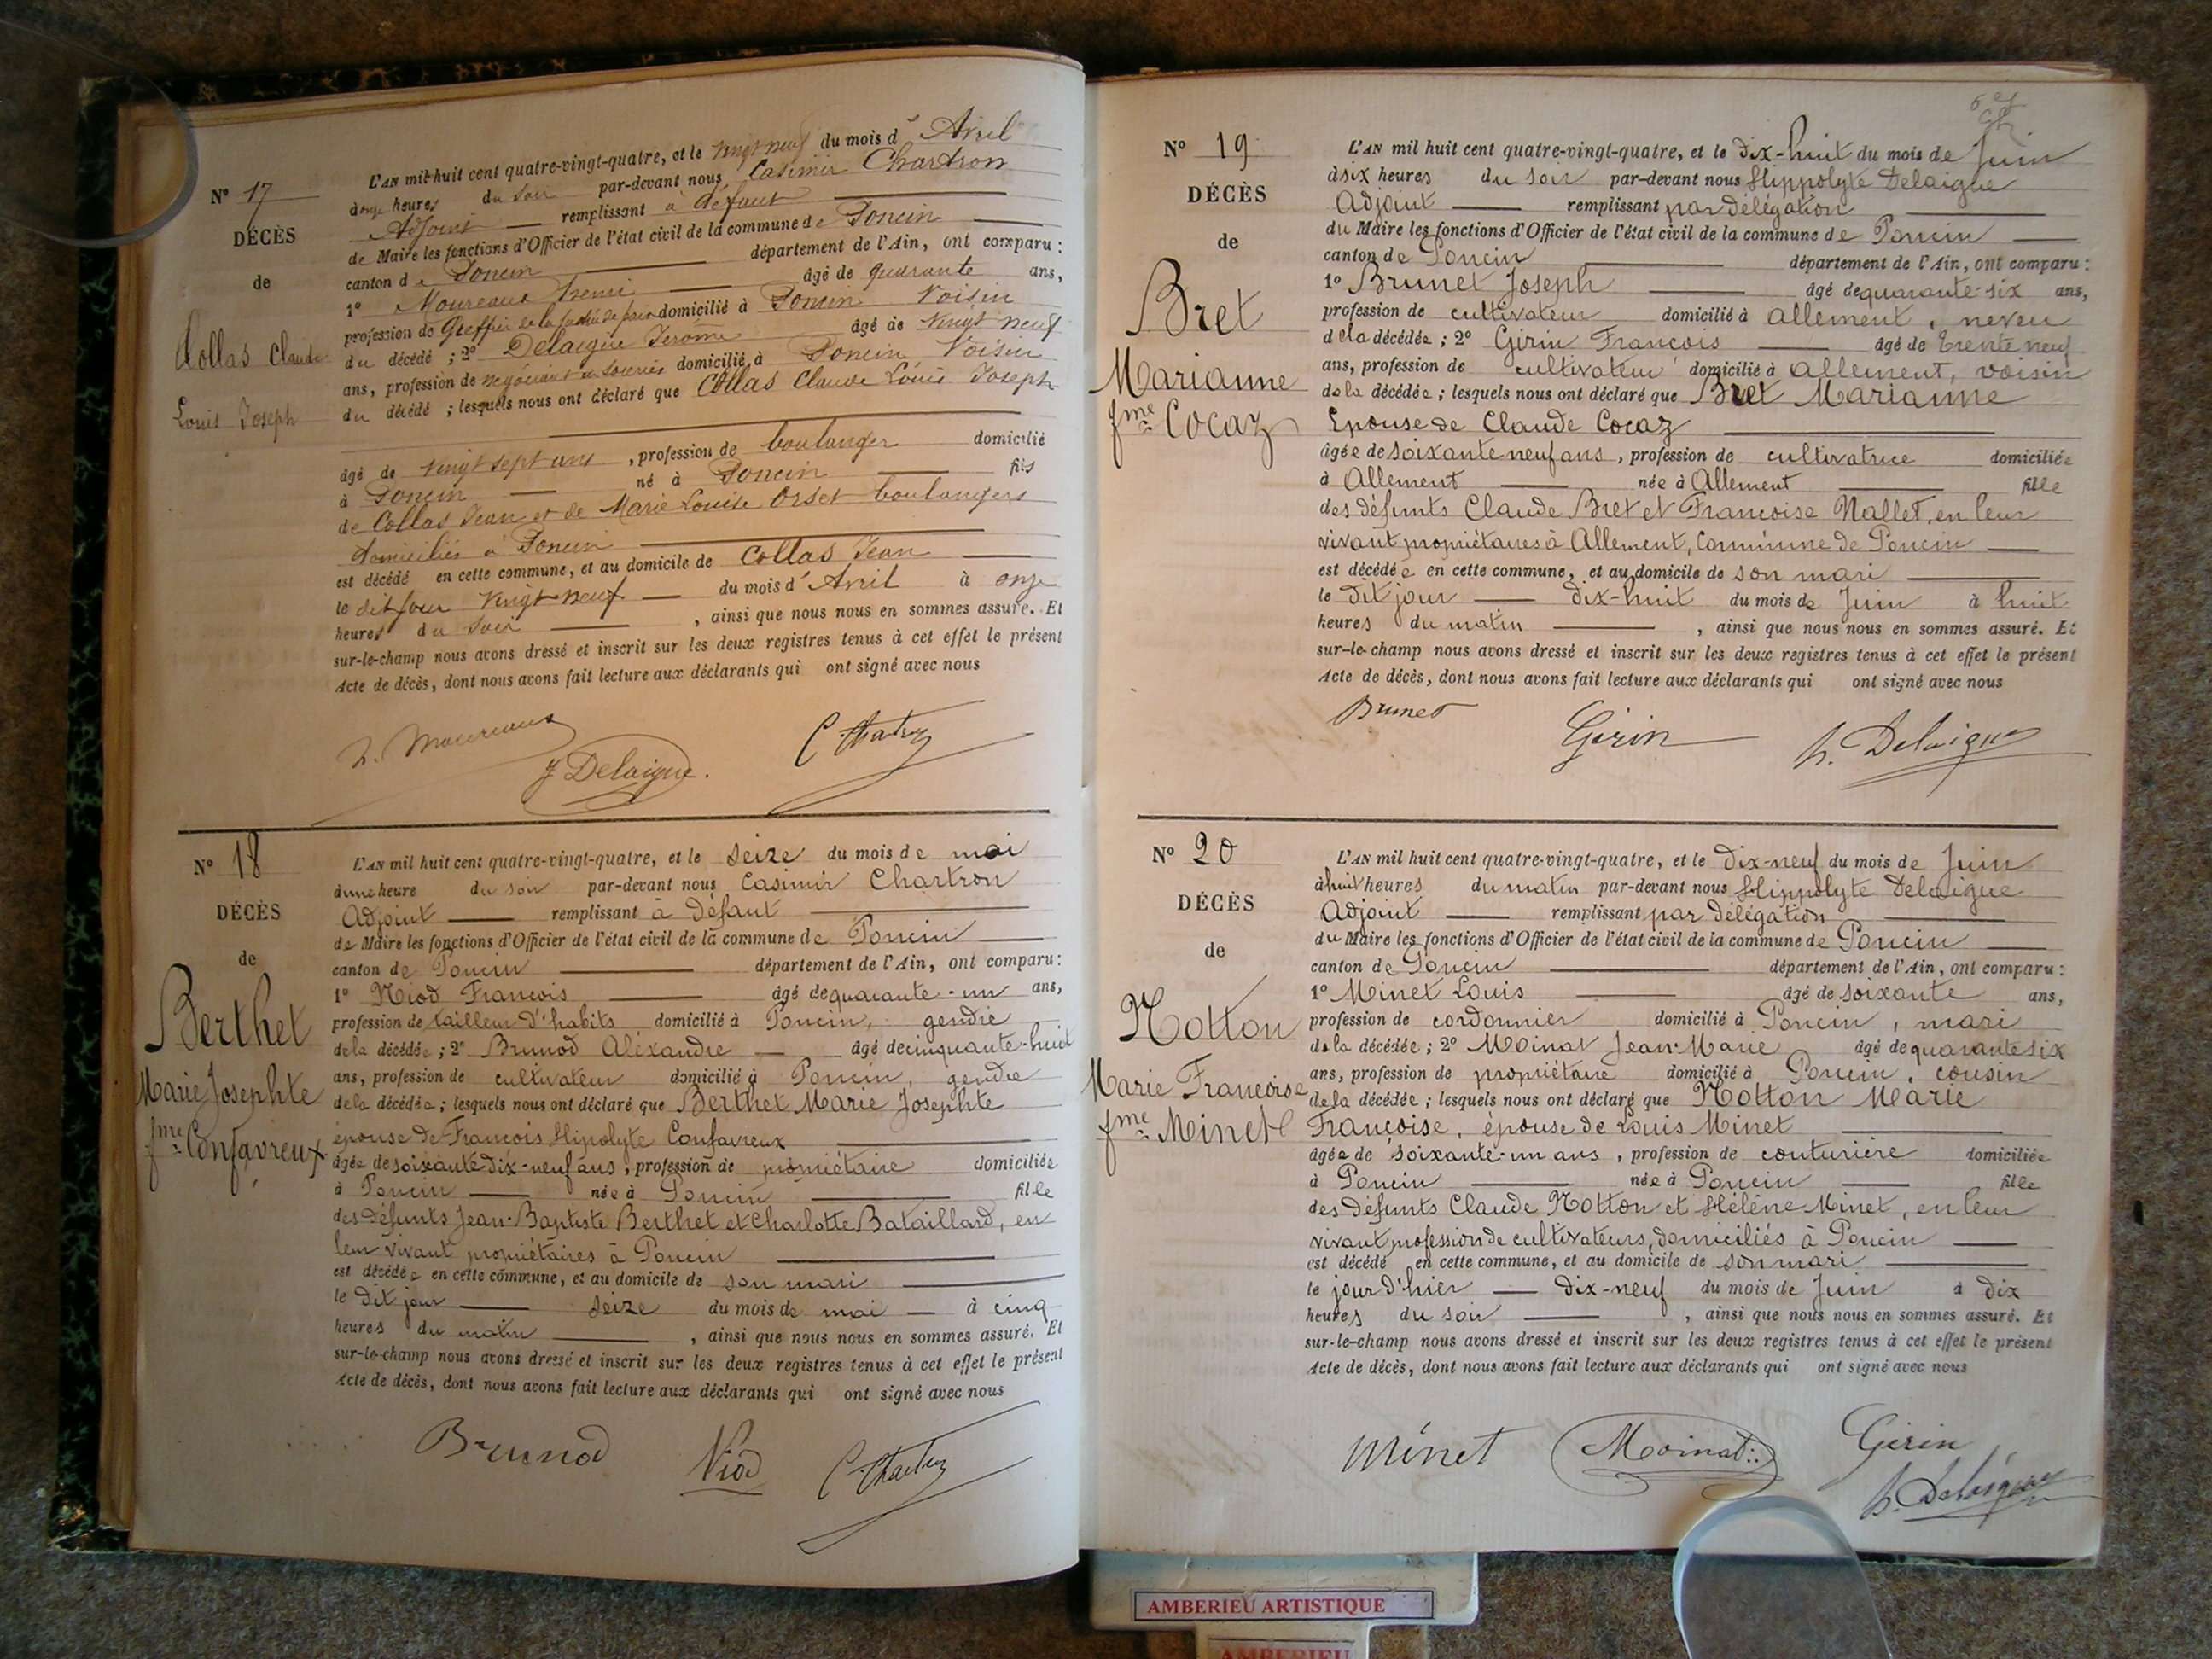 N° 17
DÉCÈS
de
Collas Claude
Louis Joseph
L'AN mil huit cent quatre-vingt-quatre, et le vingt neuf du mois d' Avril
heures du soir par-devant nous Casimir Chartron
Adjoint remplissant à défaut
de Maire les fonctions d'Officier de l'état civil de la commune de Poncin
canton de Poncin département de l'Ain, ont comparu :
1° Moureaux Henri âgé de quarante ans,
profession de Greffier de la justice de paix domicilié à Poncin Voisin
du décédé ; 2° Delaigue Jérôme âgé de vingt neuf
ans, profession de négociant en soieries domicilié à Poncin Voisin
du décédé ; lesquels nous ont déclaré que Collas Claude Louis Joseph
âgé de vingt sept ans , profession de boulanger domicilié
à Poncin né à Poncin fils
de Collas Jean et de Marie Louise Orset boulangers
domiciliés à Poncin
est décédé en cette commune, et au domicile de Collas Jean
le dit jour vingt-neuf du mois d' Avril à onze
heures du soir , ainsi que nous nous en sommes assuré. Et
sur-le-champ nous avons dressé et inscrit sur les deux registres tenus à cet effet le présent
Acte de décès, dont nous avons fait lecture aux déclarants qui ont signé avec nous
J Delaigue.
N° 18
DÉCÈS
de
Berthet
Marie Josephte
fme Confavreux
L'AN mil huit cent quatre-vingt-quatre, et le seize du mois de mai
à une heure du soir par-devant nous Casimir Chartron
Adjoint remplissant à défaut
de Maire les fonctions d'Officier de l'état civil de la commune de Poncin
canton de Poncin département de l'Ain, ont comparu :
1° Niod François âgé de quarante-un ans,
profession de tailleur d'habits domicilié à Poncin, gendre
de la décédée ; 2° Brunod Alexandre âgé de cinquante-huit
ans, profession de cultivateur domicilié à Poncin, gendre
de la décédée ; lesquels nous ont déclaré que Berthet Marie Josephte
épouse de François Hipolyte Confavreux
âgée de soixante dix-neuf ans , profession de propriétaire domiciliée
à Poncin née à Poncin fille
des défunts Jean-Baptiste Berthet et Charlotte Bataillard, en
leur vivant propriétaires à Poncin
est décédée en cette commune, et au domicile de son mari
le dit jour seize du mois de mai à cinq
heures du matin , ainsi que nous nous en sommes assuré. Et
sur-le-champ nous avons dressé et inscrit sur les deux registres tenus à cet effet le présent
Acte de décès, dont nous avons fait lecture aux déclarants qui ont signé avec nous
Brunod Niod
N° 19
DÉCÈS
de
Bret
Marianne
fme Cocaz
L'AN mil huit cent quatre-vingt-quatre, et le dix-huit du mois de Juin
à six heures du soir par-devant nous Hippolyte Delaigue
Adjoint remplissant par délégation
du Maire les fonctions d'Officier de l'état civil de la commune de Poncin
canton de Poncin département de l'Ain, ont comparu :
1° Brunet Joseph âgé de quarante-six ans,
profession de cultivateur domicilié à Allement, neveu
de la décédée ; 2° Girin François âgé de trente neuf
ans, profession de cultivateur domicilié à Allement, voisin
de la décédée ; lesquels nous ont déclaré que Bret Marianne
Epouse de Claude Cocaz
âgée de soixante neuf ans , profession de cultivatrice domiciliée
à Allement née à Allement fille
des défunts Claude Bret et Françoise Nallet, en leur
vivant propriétaires à Allement, Commune de Poncin
est décédée en cette commune, et au domicile de son mari
le dit jour dix-huit du mois de Juin à huit
heures du matin , ainsi que nous nous en sommes assuré. Et
sur-le-champ nous avons dressé et inscrit sur les deux registres tenus à cet effet le présent
Acte de décès, dont nous avons fait lecture aux déclarants qui ont signé avec nous
Brunet Girin h. Delaigue
N° 20
DÉCÈS
de
Notton
Marie Françoise
fme Minet
L'AN mil huit cent quatre-vingt-quatre, et le dix-neuf du mois de Juin
à huit heures du matin par-devant nous Hippolyte Delaigue
Adjoint remplissant par délégation
du Maire les fonctions d'Officier de l'état civil de la commune de Poncin
canton de Poncin département de l'Ain, ont comparu :
1° Minet Louis âgé de soixante ans,
profession de cordonnier domicilié à Poncin, mari
de la décédée ; 2° Moinat Jean-Marie âgé de quarante six
ans, profession de propriétaire domicilié à Poncin, cousin
de la décédée ; lesquels nous ont déclaré que Notton Marie
Françoise, épouse de Louis Minet
âgée de soixante-un ans , profession de couturière domiciliée
à Poncin née à Poncin fille
des défunts Claude Notton et Hélène Minet, en leur
vivant profession de cultivateurs, domiciliés à Poncin
est décédé en cette commune, et au domicile de son mari
le jour d'hier dix-neuf du mois de Juin à dix
heures du soir , ainsi que nous nous en sommes assuré. Et
sur-le-champ nous avons dressé et inscrit sur les deux registres tenus à cet effet le présent
Acte de décès, dont nous avons fait lecture aux déclarants qui ont signé avec nous
Minet Moinat Girin
h. Delaigue
AMBERIEU ARTISTIQUE
AMBERIEU